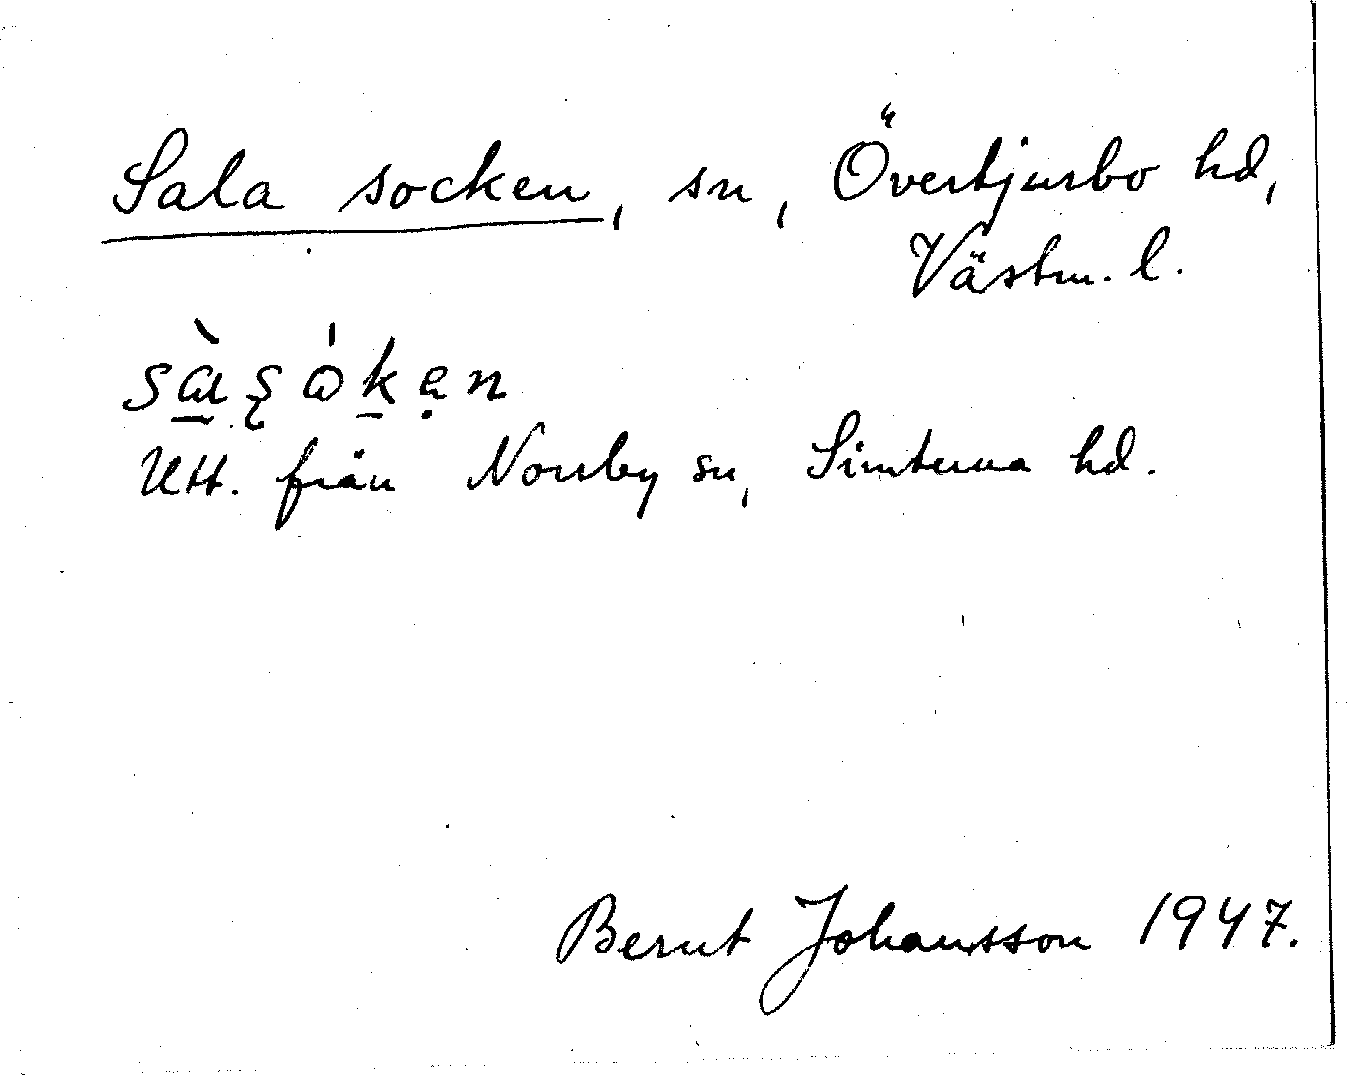 Sala socken, sn, Övertjurbo hd,
Västm. l.
sàşók̠ẹn
Utt. från Norrby sn, Simtuna hd.
Bernt Johansson 1947.